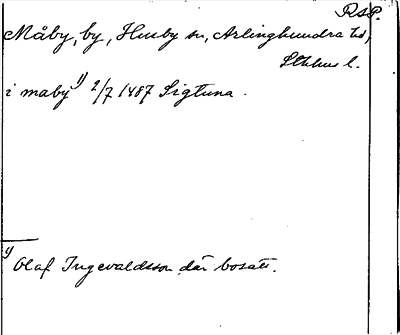 RSP.
Måby, by, Husby sn, Arlinghundra hd,
Sthlms l.
i maby 1) 2/7 1487 Sigtuna.
1) Olaf Ingevaldsson där bosatt.